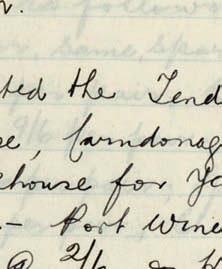 ted the Tend
se, Carndonag
ehouse for, Ye
- Port Wine
@ 2/6